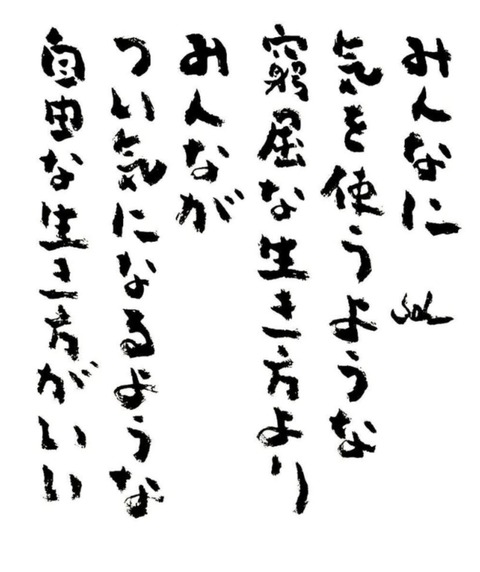 みんなに
気を使うような
窮屈な生き方より
みんなが
つい気になるような
自由な生き方がいい